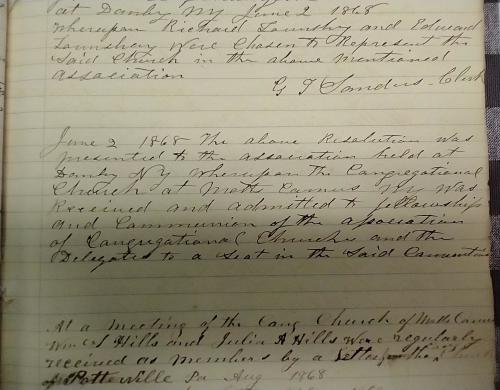 at Danby NY June 2 1868
whereupon Richard Lounsbry and Edward
Lounsbery Were Chosen to Represent the
Said Church in the above mentioned
association
G T Sanders - Clerk
June 2 1868 The above Resolution was
presented to the association held at
Danby NY whereupon the Congregational
Church at Motts Corners NY Was
Received and admitted to fellowship
and Communion of the association
of Congregational Churches and the
Delegates to a Seat in the Said Convention
At a Meeting of the Cong Church of Motts Corners
Wm S Hills and Julia A Hills Were regularly
received as Members by a letter from the Church
of Potterville Pa Aug 1868